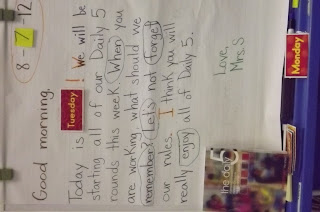 8-7-12
Good morning.
Today is Tuesday! We will be
starting all of our Daily 5
rounds this week. When you
are working what should we
remember? Let's not forget
our rules. I think you will
really enjoy all of Daily 5.
Love,
Mrs. S
Monday